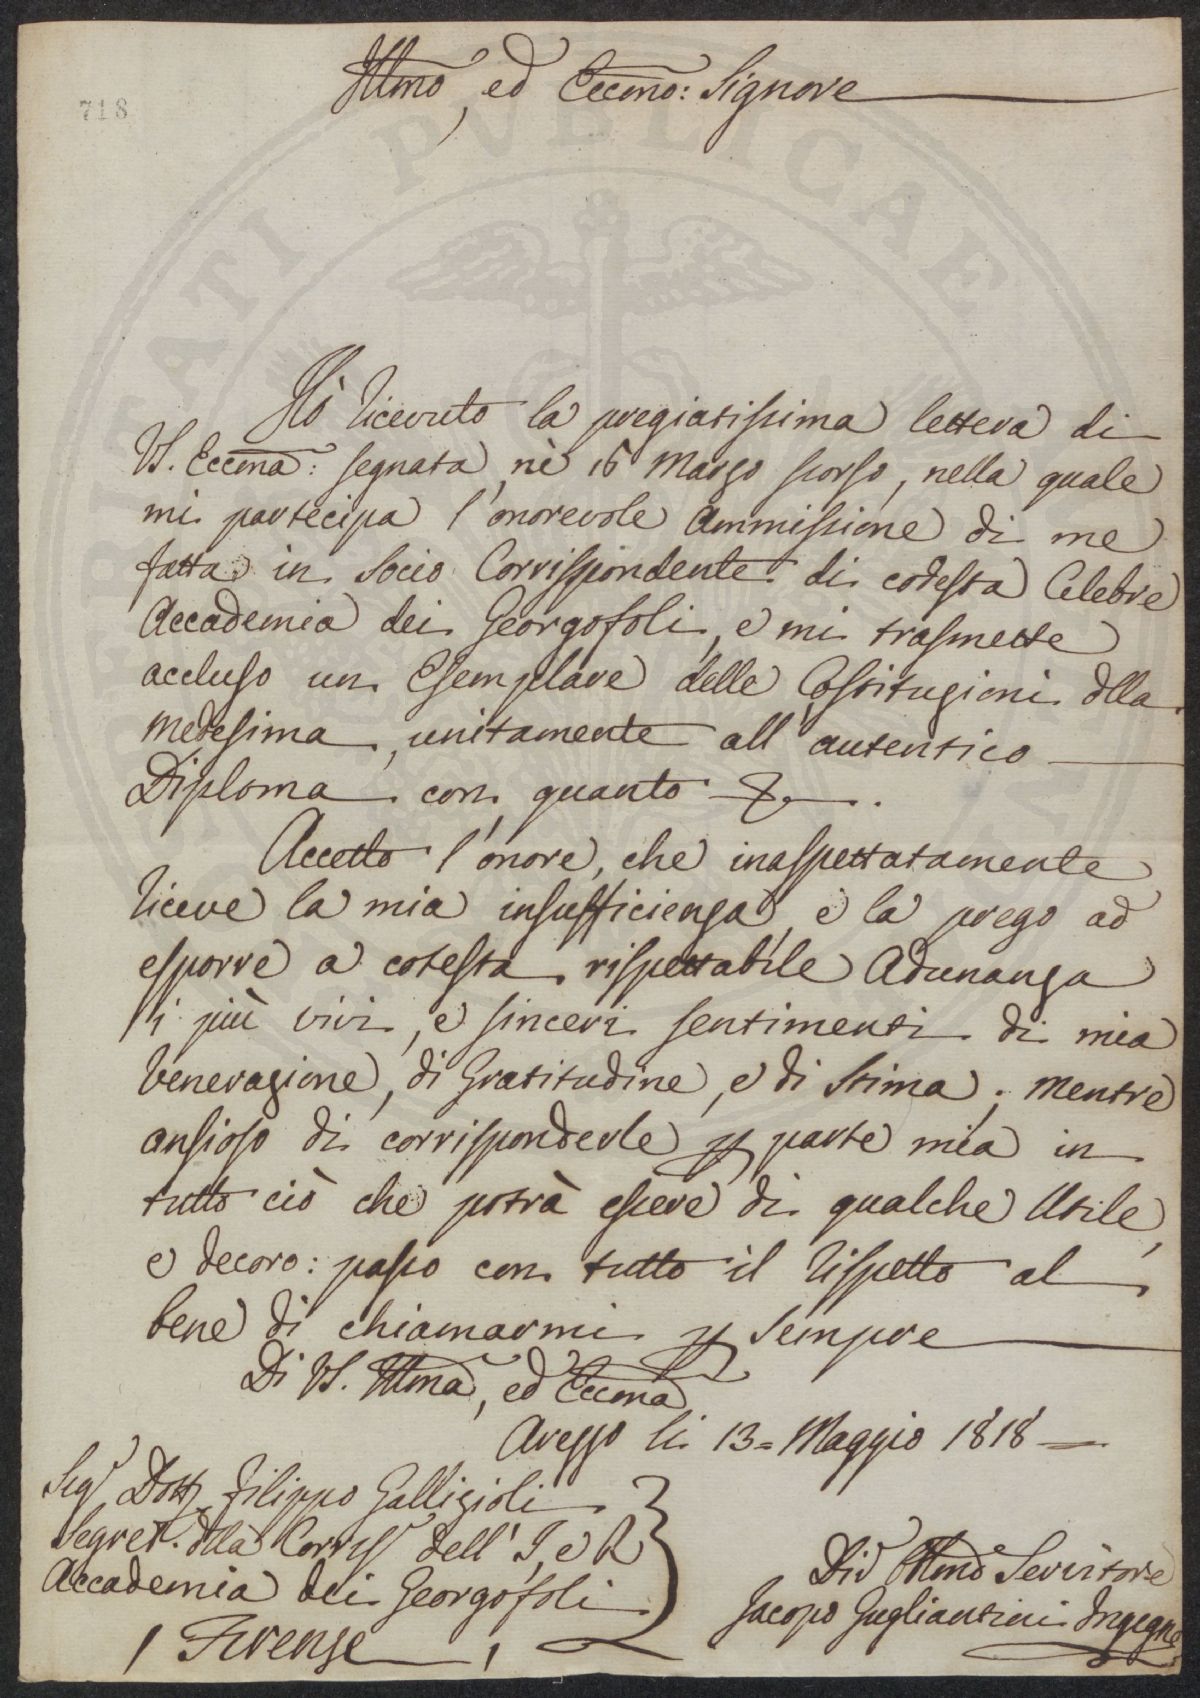 Illmo, ed Eccmo: Signore
718
PVBLICAE
Hò ricevuto la pregiatissima lettera di
VS. Eccma: segnata nè 16 Marzo scorso, nella quale
mi partecipa l'onorevole Ammissione di me
fatta in Socio Corrispondente di codesta Celebre
Accademia dei Georgofoli, e mi trasmette
accluso un Esemplare delle Costituzioni dlla
Medesima, unitamente all'autentico
Diploma con quanto &.
Accetto l'onore, che inaspettatamente
riceve la mia insufficienza, e la prego ad
esporre a cotesta rispettabile Adunanza
i più vivi, e sinceri sentimenti di mia
Venerazione, di Gratitudine, e di Stima; Mentre
ansioso di corrisponderle p parte mia in
tutto ciò che potrà essere di qualche Utile,
e decoro: passo con tutto il rispetto al
bene di chiamarmi p sempre
Di VS. Illma, ed Eccma
Arezzo li 13= Maggio 1818
Sigr Dott Filippo Gallizioli
Segret. dlla Corrisp dell' I. e R
Accademia dei Georgofoli
Firenze
Div Obblmo Servitore
Jacopo Gugliantini Ingegne